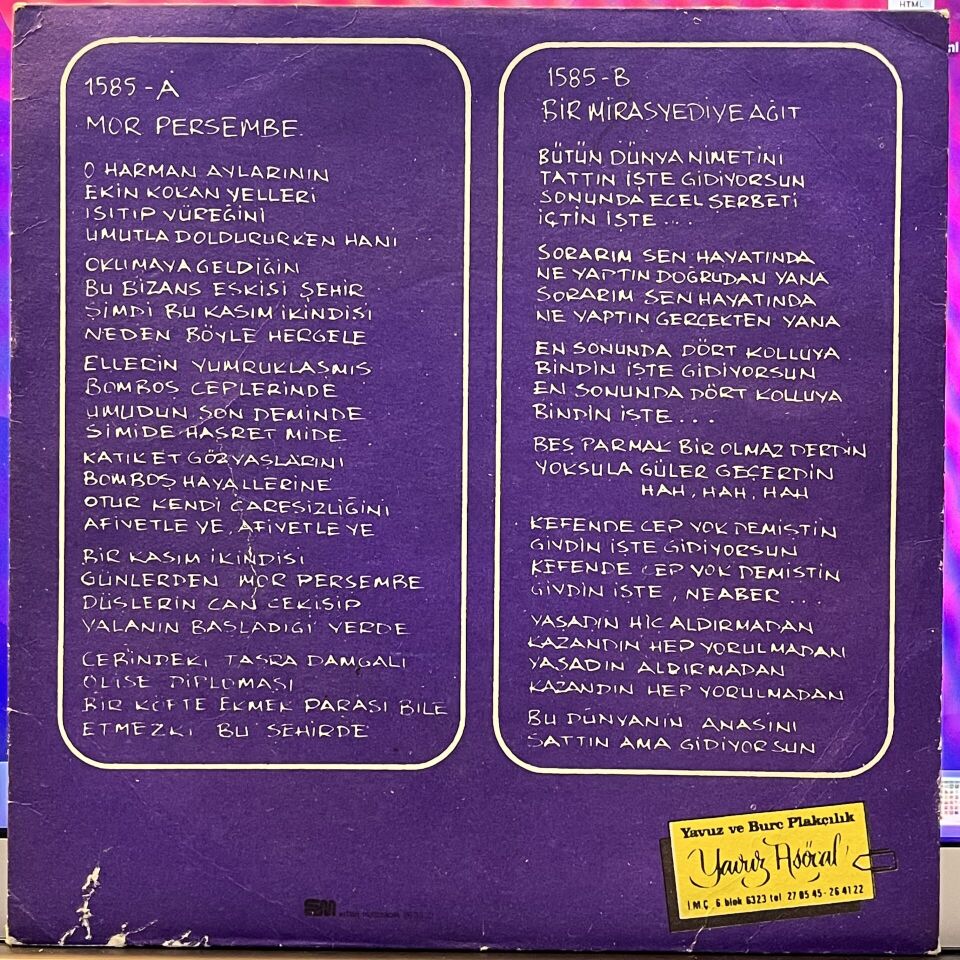 HTML
1585-A
MOR PERSEMBE.
O HARMAN AYLARININ
EKİN KOKAN YELLERİ
ISITIP YÜREĞİNİ
UMUTLA DOLDURURKEN HANİ
OKUMAYA GELDİĞİN
BU BİZANS ESKİSİ ŞEHİR
ŞİMDİ BU KASIM İKİNDİSİ
NEDEN BÖYLE HERGELE
ELLERİN YUMRUKLAŞMIŞ
BOMBOŞ CEPLERİNDE
UMUDUN SON DEMİNDE
SİMİDE HASRET MİDE
KATIK ET GÖZYAŞLARINI
BOMBOŞ HAYALLERİNE
OTUR KENDİ ÇARESİZLİĞİNİ
AFİYETLE YE, AFİYETLE YE
BİR KASIM İKİNDİSİ
GÜNLERDEN MOR PERSEMBE
DÜŞLERİN CAN ÇEKİŞİP
YALANIN BAŞLADIĞI YERDE
CEBİNDEKİ TAŞRA DAMGALI
O LİSE DİPLOMASI
BİR KÖFTE EKMEK PARASI BİLE
ETMEZKİ BU ŞEHİRDE
1585-B
BİR MİRASYEDİYE AĞIT
BÜTÜN DÜNYA NİMETİNİ
TATTIN İŞTE GİDİYORSUN
SONUNDA ECEL ŞERBETİ
İÇTİN İŞTE...
SORARIM SEN HAYATINDA
NE YAPTIN DOĞRUDAN YANA
SORARIM SEN HAYATINDA
NE YAPTIN GERÇEKTEN YANA
EN SONUNDA DÖRT KOLLUYA
BİNDİN İŞTE GİDİYORSUN
EN SONUNDA DÖRT KOLLUYA
BİNDİN İŞTE...
BEŞ PARMAK BİR OLMAZ DERDİN
YOKSULA GÜLER GEÇERDİN
HAH, HAH, HAH
KEFENDE CEP YOK DEMİŞTİN
GİYDİN İŞTE GİDİYORSUN
KEFENDE CEP YOK DEMİŞTİN
GİYDİN İŞTE, NEABER...
YAŞADIN HİÇ ALDIRMADAN
KAZANDIN HEP YORULMADAN
YAŞADIN ALDIRMADAN
KAZANDIN HEP YORULMADAN
BU DÜNYANIN ANASINI
SATTIN AMA GİDİYORSUN
Yavuz ve Burc Plakçılık
Yavuz Asöcal
İ.M.Ç. 6 blok 6323 tel 27 05 45 - 26 41 22